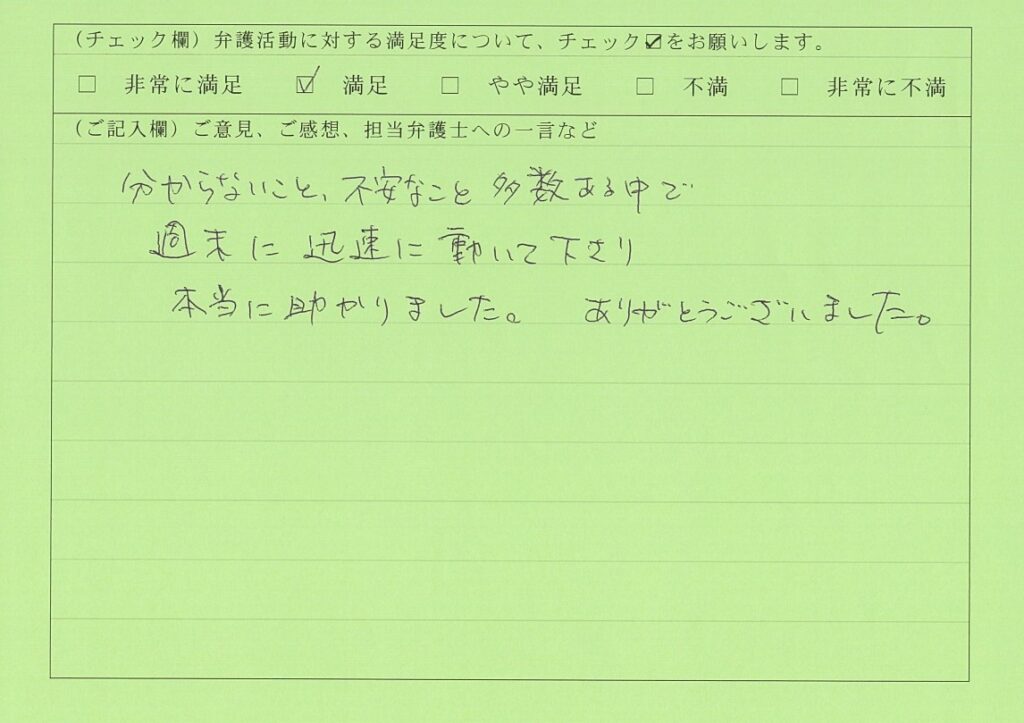 （チェック欄）弁護活動に対する満足度について、チェック☑をお願いします。
□ 非常に満足 ☑ 満足 □ やや満足 □ 不満 □ 非常に不満
（ご記入欄）ご意見、ご感想、担当弁護士への一言など
分からないこと、不安なこと 多数ある中で
週末に 迅速に 動いて下さり
本当に助かりました。 ありがとうございました。